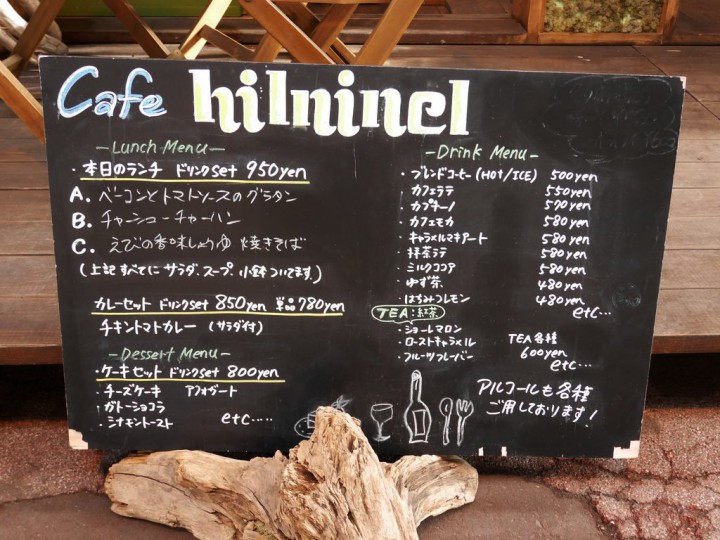 Cafe hilnincl
-Lunch Menu-
・本日のランチ ドリンクset 950yen
A. ベーコンとトマトソースのグラタン
B. チャーシューチャーハン
C. えびの香味しょうゆ 焼きそば
(上記すべてにサラダ、スープ、小鉢ついてます。)
カレーセット ドリンクset 850yen 単品780yen
チキントマトカレー (サラダ付)
-Dessert Menu-
・ケーキセット ドリンクset 800yen
・チーズケーキ アフォガート
・ガトーショコラ
・シナモントースト etc.....
-Drink Menu-
・ブレンドコーヒー(HOT/ICE) 500yen
・カフェラテ 550yen
・カプチーノ 570yen
・カフェモカ 580yen
・キャラメルマキアート 580yen
・抹茶ラテ 580yen
・ミルクココア 580yen
・ゆず茶 480yen
・はちみつレモン 480yen
etc...
TEA:紅茶
・ショールマロン
・ローストキャラメル
・フルーツフレーバー
TEA各種
600yen
etc...
アルコールも各種
ご用しております!